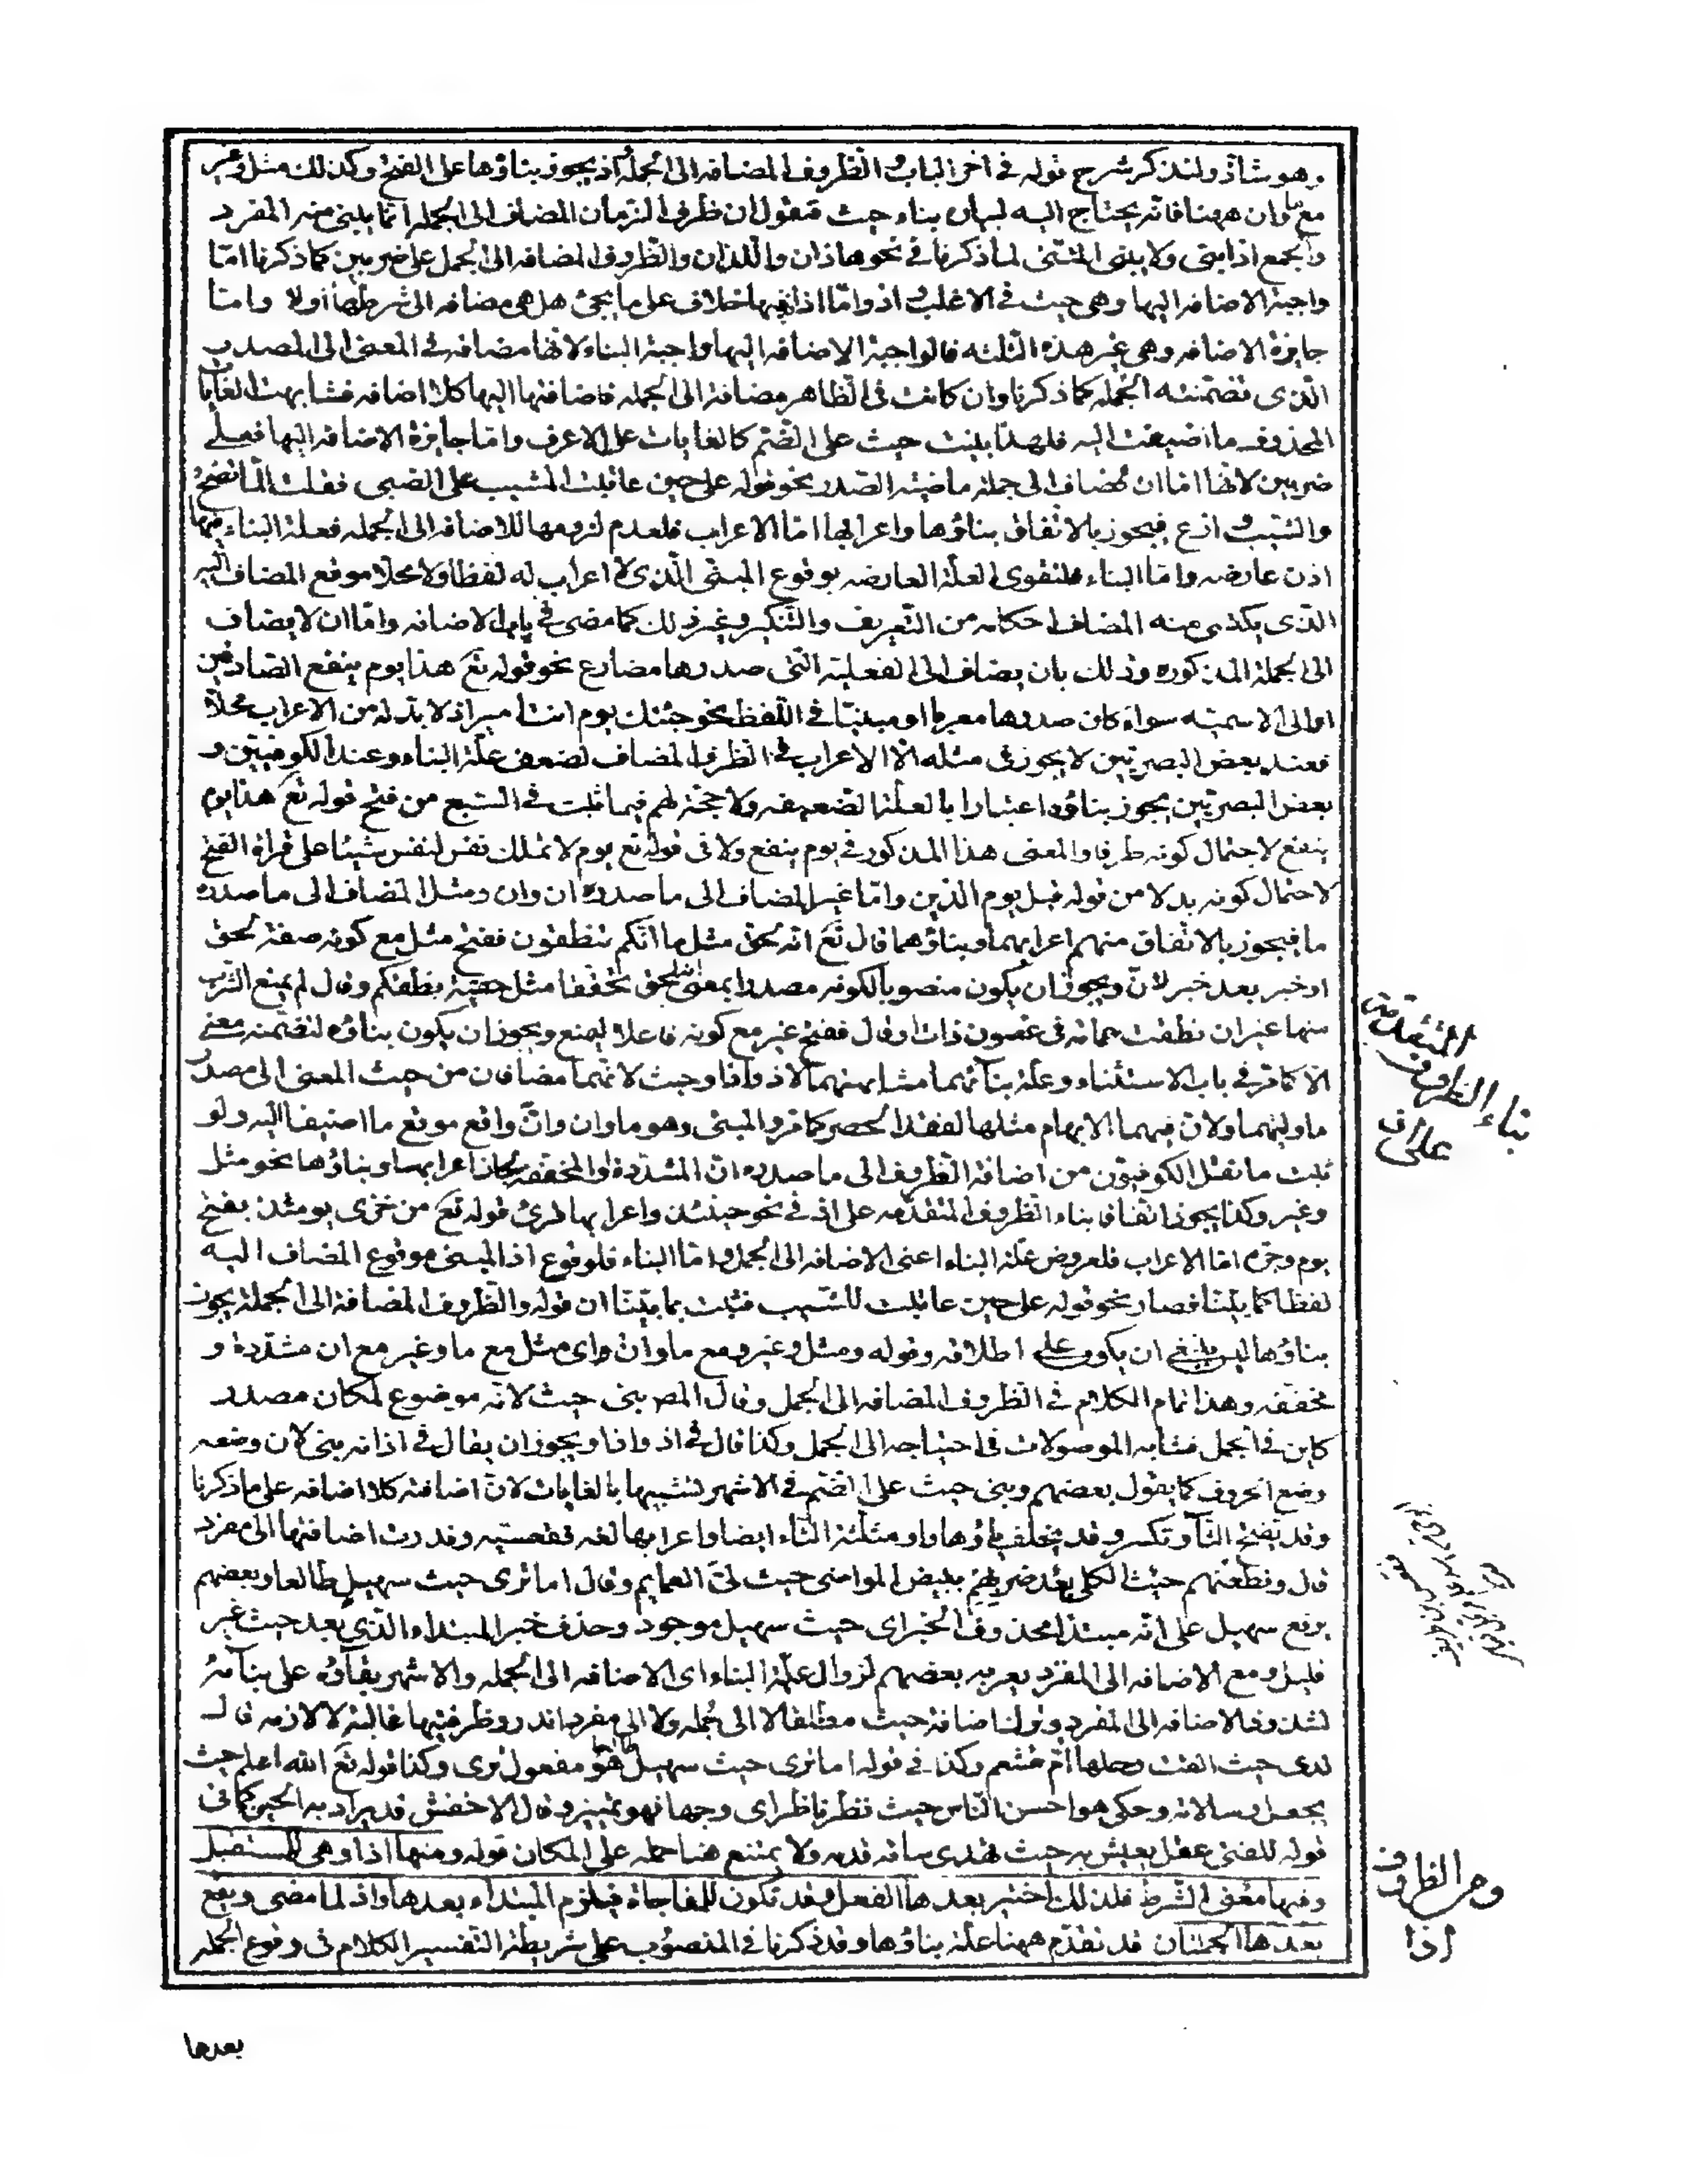 وهو شاذ ولنذكر شرح قوله في اخر الباب والظروف المضافه الى الجملة واذ يجوز بناؤها على الفتح وكذلك مثل وغير
مع ما وان ههنا فانه يحتاج اليه لبيان بناء حيث فنقول ان ظرف الزمان المضاف الى الجمله انما يبنى منه المفرد
والجمع اذا بنى ولا يبنى المثنى لما ذكرنا في نحو هاذان واللذان والظروف المضافه الى الجمل على ضربين كما ذكرنا امّا
واجبة الاضافه اليها وهى حيث في الاغلب واذ وامّا اذا ففيها خلاف على ما يجئ هل هى مضافه الى شرطها اولا وامّا
جايزة الاضافه وهى غير هذه الثلثه فالواجبة الاضافه اليها واجبة البناء لانها مضافه في المعنى الى المصدر
الذى تضمنته الجمله كما ذكرنا وان كانت في الظاهر مضافة الى الجمله فاضافتها اليها كلا اضافه فشابهت الغايات
المحذوف ما اضيفت اليه فلهذا بنيت حيث على الضم كالغايات على الاعرف وامّا جايزة الاضافه اليها فعلى
ضربين لانها امّا ان تضاف الى جملة ماضية الصدر نحو قوله على حين عاتبت المشيب على الصبى فقلت المّا تصح
والشيب وازع فيجوز بالاتفاق بناؤها واعرابها امّا الاعراب فلعدم لزومها للاضافه الى الجمله فعلة البناء فيها
اذن عارضه وامّا البناء فلتقوى العلة العارضه بوقوع المبنى الذى لا اعراب له لفظا ولا محلا موقع المضاف اليه
الذى يكتسى منه المضاف احكامه من التعريف والتنكير وغير ذلك كما مضى في باب الاضافه وامّا ان لا يضاف
الى الجملة المذكوره وذلك بان يضاف الى الفعلية التى صدرها مضارع نحو قوله تع هذا يوم ينفع الصادقين
او الى الاسميته سواء كان صدرها معربا او مبنيا في اللفظ نحو جئتك يوم انت امير اذ لا بدّ له من الاعراب محلا
فعند بعض البصريين لا يجوز في مثله الا الاعراب في الظرف المضاف لضعف علة البناء وعند الكوفيين و
بعض البصريين يجوز بناؤه اعتبارا بالعلة الضعيفه ولا حجة لهم فيما ثبت في السبع من فتح قوله تع هذا يوم
ينفع لاحتمال كونه ظرفا والمعنى هذا المذكور في يوم ينفع ولا في قوله تع يوم لا تملك نفس لنفس شيئا على قراة الفتح
لاحتمال كونه بدلا من قوله قبل يوم الدين وامّا غير المضاف الى ما صدره ان وان ومثل المضاف الى ما صدره
ما فيجوز بالاتفاق منهم اعرابهما وبناؤهما قال تع انه لحق مثل ما انكم تنطقون ففتح مثل مع كونه صفة لحق
او خبر بعد خبر لانّ ويجوز ان يكون منصوبا لكونه مصدرا بمعنى انه لحق تحققا مثل حقية نطقكم وقال لم يمنع الشرب
منها غير ان نطقت حمامة في غصون ذات اوقال ففتح غير مع كونه فاعلا ليمنع ويجوز ان يكون بناؤه لتضمنه معنى
الا كما مرّ في باب الاستثناء وعلة بنائهما مشابهتهما لاذ واذا وحيث لانهما مضافان من حيث المعنى الى مصدر
ما وليهما ولان فيهما الابهام مثلها لفقد الحصر كما مر والمبنى وهو ما وان وانّ واقع موقع ما اضيفا اليه ولو
ثبت ما نقل الكوفيون من اضافة الظروف الى ما صدره انّ المشددة او المخففه لجاز اعرابها وبناؤها نحو مثل
وغير وكذا يجوز اتفاقا بناء الظروف المتقدمه على اذ في نحو حينئذ واعرابها قرئ قوله تع من خزى يومئذ بفتح
يوم وجرّه امّا الاعراب فلعروض علة البناء اعنى الاضافه الى الجمل وامّا البناء فلوقوع اذ المبنى موقوع المضاف اليه
لفظا كما بيّنا فصار نحو قوله على حين عاتبت للشيب فثبت بما بيّنا ان قوله والظروف المضافة الى الجملة يجوز
بناؤها ليس ينبغى ان يكون على اطلاقه وقوله ومثل وغير مع ما وان واى مثل مع ما وغير مع ان مشددة و
مخففه وهذا تمام الكلام في الظروف المضافه الى الجمل وقال المصـ بنى حيث لانه موضوع لمكان مصدر
كاين في الجمل فشابه الموصولات في احتياجه الى الجمل وكذا قال في اذ واذا ويجوز ان يقال في اذ انه بنى لان وضعه
وضع الحروف كما يقول بعضهم وبنى حيث على الضم في الاشهر لشبهها بالغايات لانّ اضافته كلا اضافه على ما ذكرنا
وقد تفتح الثاء وتكسر وقد يخلف ياؤها واو مثلثة الثاء ايضا واعرابها لغه فقعسيه وقد ردت اضافتها الى مفرد
قال ونطعنهم حيث الكلى بعد ضربهم ببيض المواضى حيث لىّ العمايم وقال اما ترى حيث سهيل طالعا وبعضهم
يرفع سهيل على انه مبتدا محذوف الخبر اى حيث سهيل موجود وحذف خبر المبتداء الذى بعد حيث غير
قليل ومع الاضافه الى المفرد يعربه بعضهم لزوال علّة البناء اى الاضافه الى الجمله والاشهر بقاؤه على بنائه
لشذوذ الاضافه الى المفرد وترك اضافة حيث مطلقا لا الى جمله ولا الى مفرد اندر وظرفيتها غالبة لا لازمه قال
لدى حيث القت رحلها امّ قشعم وكذا في قوله اما ترى حيث سهيل طالعا هو مفعول ترى وكذا قوله تع الله اعلم حيث
يجعل رسالاته وحكى هو احسن الناس حيث نظر ناظر اى وجها فهو تمييز وقال الاخفش قد يراد به الحين كما في
قوله للفتى عقل يعيش به حيث تهدى ساقه قدمه ولا يمتنع هنا حمله على المكان قوله ومنها اذا وهى للمستقبل
وفيها معنى الشرط فلذلك اختير بعدها الفعل وقد تكون للمفاجاة فيلزم المبتداء بعدها واذ لما مضى ويقع
بعدها الجملتان قد تقدّم ههنا علّة بناؤها وقد ذكرنا في المنصوب على شريطة التفسير الكلام في وقوع الجمله
بعدها
بناء الظروف المتقدمة على اذ
ومن الظروف اذا